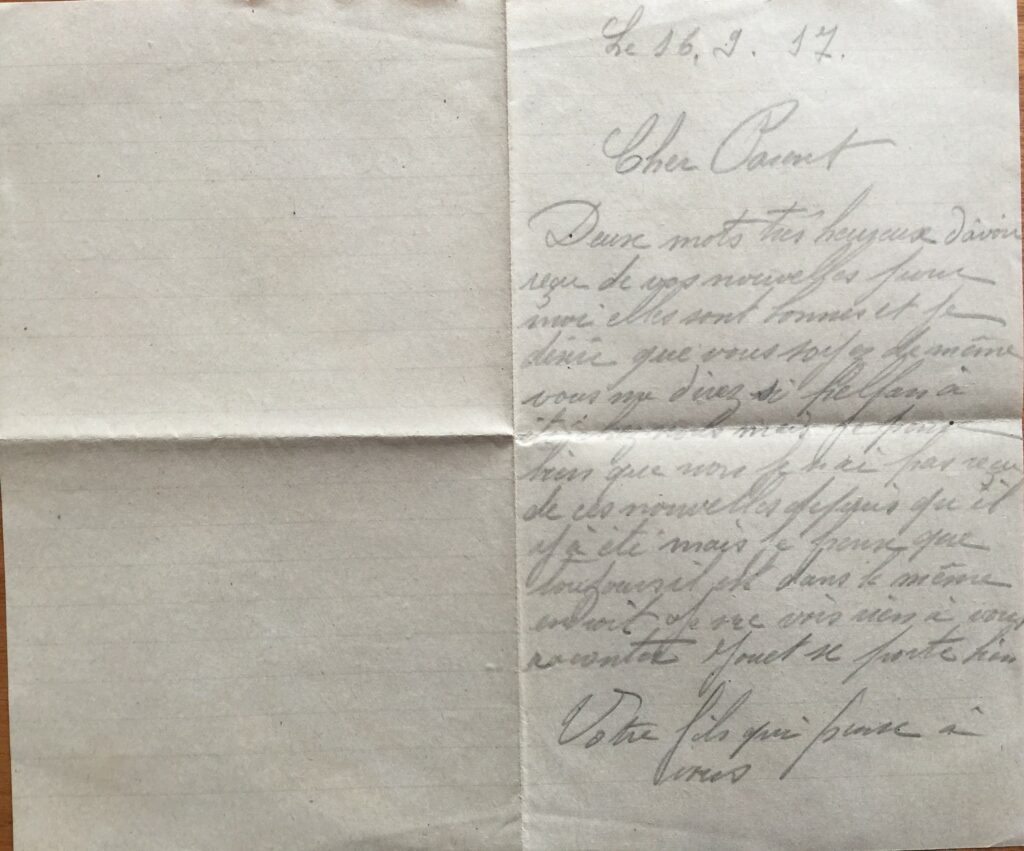 Le 16. 9. 17.
Cher Parent
Deux mots très heureux d'avoir
reçu de vos nouvelles pour
moi elles sont bonnes et je
désire que vous soyez de même
vous me direz si à
mais je pense
bien que non je n'ai pas reçu
de ces nouvelles depuis qu'il
y à été mais je pense que
toujours il est dans le même
endroit je ne vois rien à vous
raconter se porte bien
Votre fils qui pense à
vous